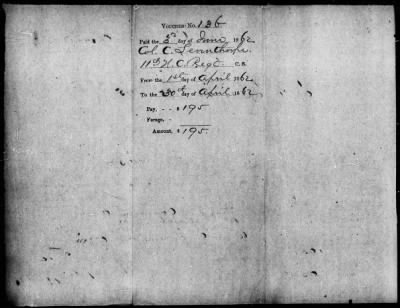 Voucher No. 136
Paid the 5th day of June 1862
Col C. Leventhorpe
11th N.C. Regt. C.S.
From the 1st day of April 1862
To the 30th day of April 1862
Pay, - - $ 195
Forage, -
Amount, $ 195